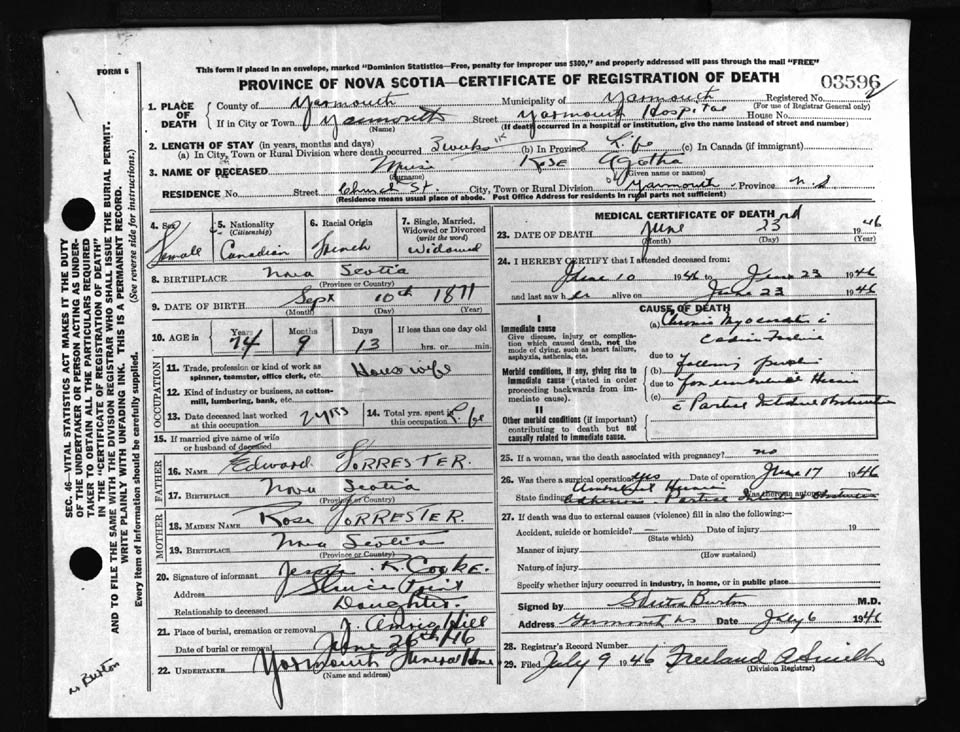 FORM 6
This form if placed in an envelope, marked "Dominion Statistics—Free, penalty for improper use $300," and properly addressed will pass through the mail "FREE"
PROVINCE OF NOVA SCOTIA—CERTIFICATE OF REGISTRATION OF DEATH
03596
1. PLACE OF DEATH
County of Yarmouth Municipality of Yarmouth Registered No.
(For use of Registrar General only)
If in City or Town Yarmouth Street Yarmouth Hospital House No.
(Name) (If death occurred in a hospital or institution, give the name instead of street and number)
2. LENGTH OF STAY (in years, months and days)
(a) In City, Town or Rural Division where death occurred 3 weeks (b) In Province Life (c) In Canada (if immigrant)
3. NAME OF DECEASED Muise Rose Agatha
(Surname) (Given name or names)
RESIDENCE No. Street Church St. City, Town or Rural Division Yarmouth Province N.S
(Residence means usual place of abode. Post Office Address for residents in rural parts not sufficient)
4. Sex Female
5. Nationality (Citizenship) Canadian
6. Racial Origin French
7. Single, Married, Widowed or Divorced (write the word) Widowed
8. BIRTHPLACE Nova Scotia
(Province or Country)
9. DATE OF BIRTH Sept 10th 1871
(Month) (Day) (Year)
10. AGE Years 74 Months 9 Days 13 If less than one day old
hrs. or min.
OCCUPATION
11. Trade, profession or kind of work as spinner, teamster, office clerk, etc. Housewife
12. Kind of industry or business, as cotton-mill, lumbering, bank, etc.
13. Date deceased last worked at this occupation 2 yrs
14. Total yrs. spent in this occupation Life
15. If married give name of wife or husband of deceased
FATHER
16. NAME Edward FORRESTER.
17. BIRTHPLACE Nova Scotia
(Province or Country)
MOTHER
18. MAIDEN NAME Rose FORRESTER.
19. BIRTHPLACE Nova Scotia
(Province or Country)
20. Signature of informant R. Cooke.
Address Sluice Point
Relationship to deceased Daughter.
21. Place of burial, cremation or removal Hill
Date of burial or removal June 26th/46
22. UNDERTAKER Yarmouth Funeral Home
(Name and address)
MEDICAL CERTIFICATE OF DEATH
23. DATE OF DEATH June 23rd 1946
(Month) (Day) (Year)
24. I HEREBY CERTIFY that I attended deceased from
June 10 1946 to June 23 1946
and last saw her alive on June 23 1946
CAUSE OF DEATH
I
Immediate cause
Give disease, injury or complication which caused death, not the mode of dying, such as heart failure, asphyxia, asthenia, etc.
(a) Chronic Myocarditis
due to
Morbid conditions, if any, giving rise to immediate cause (stated in order proceeding backwards from immediate cause).
(b) following
due to
(c) Partial Obstruction
II
Other morbid conditions (if important) contributing to death but not causally related to immediate cause.
25. If a woman, was the death associated with pregnancy? no
26. Was there a surgical operation? Yes Date of operation June 17 1946
State finding Umbilical Hernia Was there an autopsy?
Adhesions Partial Obstruction
27. If death was due to external causes (violence) fill in also the following:—
Accident, suicide or homicide? — Date of injury 19
(State which)
Manner of injury
(How sustained)
Nature of injury
Specify whether injury occurred in industry, in home, or in public place
Signed by Burton M.D.
Address Yarmouth NS Date July 6 1946
28. Registrar's Record Number
29. Filed July 9 1946 Freeland A Smith
(Division Registrar)
SEC. 46—VITAL STATISTICS ACT MAKES IT THE DUTY
OF THE UNDERTAKER OR PERSON ACTING AS UNDER-
TAKER TO OBTAIN ALL THE PARTICULARS REQUIRED
IN THE "CERTIFICATE OF REGISTRATION OF DEATH"
AND TO FILE THE SAME WITH THE DIVISION REGISTRAR WHO SHALL ISSUE THE BURIAL PERMIT.
WRITE PLAINLY WITH UNFADING INK. THIS IS A PERMANENT RECORD.
Every item of information should be carefully supplied. (See reverse side for instructions.)
Burton